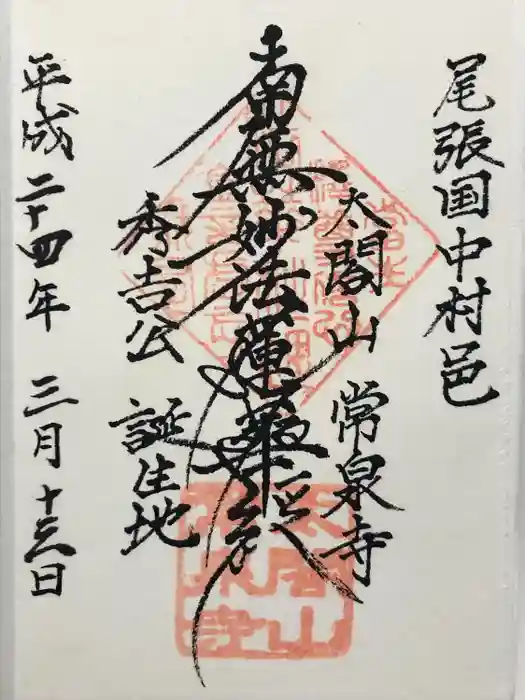 尾張国中村邑
太閤山 常泉寺
南無妙法蓮華経
秀吉公 誕生地
平成二十四年 三月十三日
太閤山
常泉寺